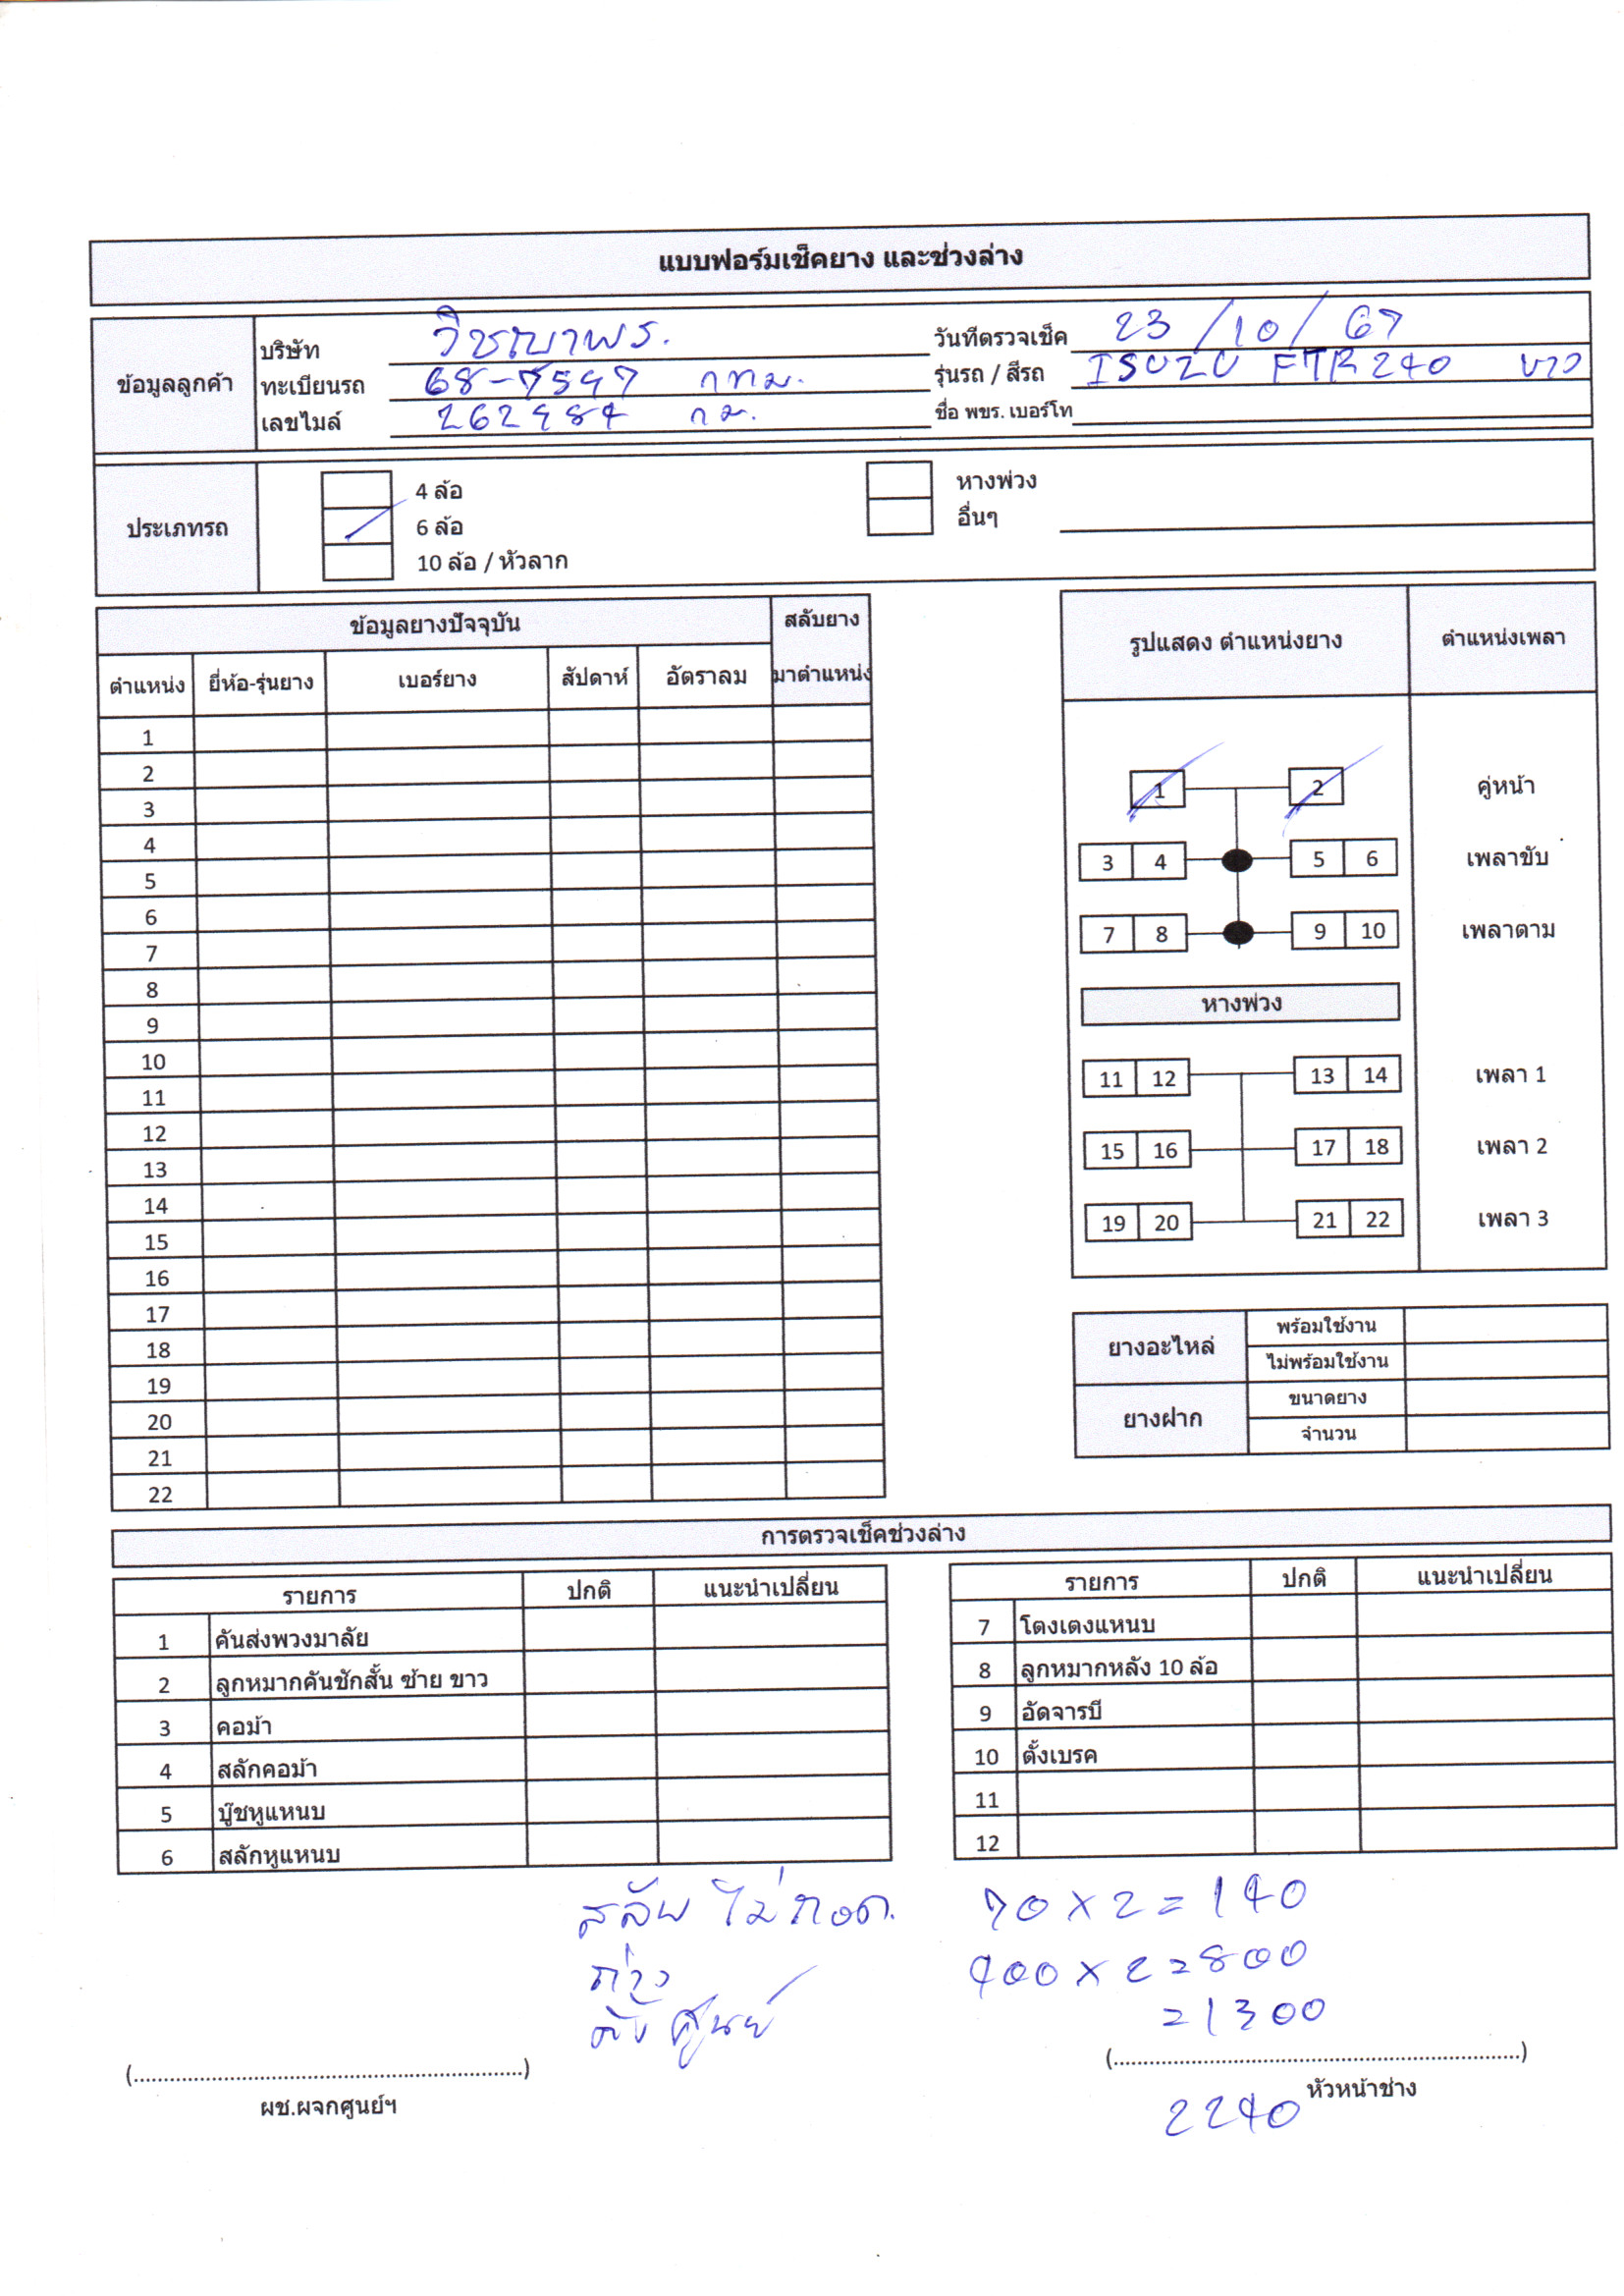 แบบฟอร์มเช็คยาง และช่วงล่าง
ข้อมูลลูกค้า
บริษัท วิชญาพร.
วันที่ตรวจเช็ค 23/10/67
ทะเบียนรถ 68-7597 กทม.
รุ่นรถ / สีรถ ISUZU FTR240 ขาว
เลขไมล์ 262984 กม.
ชื่อ พขร. เบอร์โท
ประเภทรถ
4 ล้อ
6 ล้อ
10 ล้อ / หัวลาก
หางพ่วง
อื่นๆ
ข้อมูลยางปัจจุบัน สลับยาง
ตำแหน่ง ยี่ห้อ-รุ่นยาง เบอร์ยาง สัปดาห์ อัตราลม มาตำแหน่ง
1
2
3
4
5
6
7
8
9
10
11
12
13
14
15
16
17
18
19
20
21
22
รูปแสดง ตำแหน่งยาง ตำแหน่งเพลา
1 2 คู่หน้า
3 4 5 6 เพลาขับ
7 8 9 10 เพลาตาม
หางพ่วง
11 12 13 14 เพลา 1
15 16 17 18 เพลา 2
19 20 21 22 เพลา 3
ยางอะไหล่ พร้อมใช้งาน
ไม่พร้อมใช้งาน
ยางฝาก ขนาดยาง
จำนวน
การตรวจเช็คช่วงล่าง
รายการ ปกติ แนะนำเปลี่ยน
1 คันส่งพวงมาลัย
2 ลูกหมากคันชักสั้น ซ้าย ขาว
3 คอม้า
4 สลักคอม้า
5 บู๊ชหูแหนบ
6 สลักหูแหนบ
รายการ ปกติ แนะนำเปลี่ยน
7 โตงเตงแหนบ
8 ลูกหมากหลัง 10 ล้อ
9 อัดจารบี
10 ตั้งเบรค
11
12
สลับ ไม่ถอด.
ถ่วง
ตั้งศูนย์
70 x 2 = 140
400 x 2 = 800
= 1300
2240
(....................)
ผช.ผจกศูนย์ฯ
(....................)
หัวหน้าช่าง